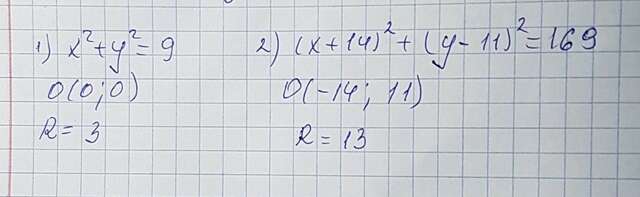 1) x² + y² = 9
O(0; 0)
R = 3
2) (x + 14)² + (y - 11)² = 169
O(-14; 11)
R = 13